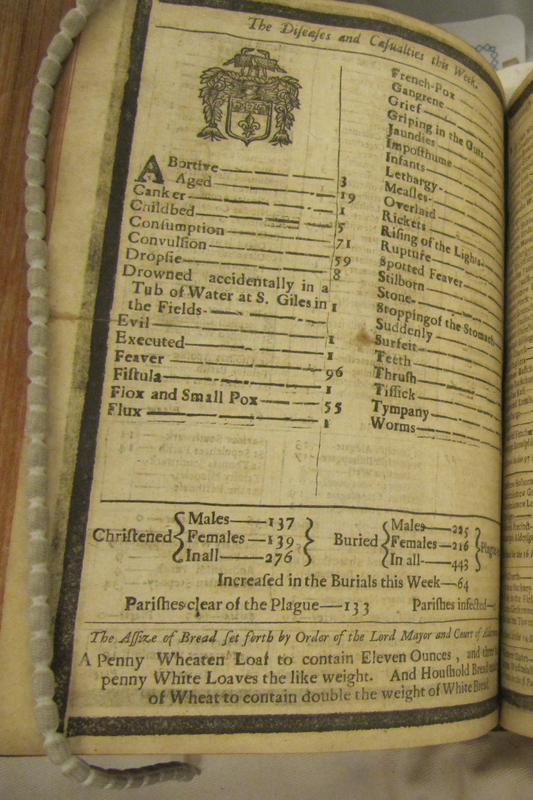 The Diſeaſes and Caſualties this Week.
ABortive — 3
Aged — 19
Canker — 1
Childbed — 5
Conſumption — 71
Convulſion — 59
Dropſie — 8
Drowned accidentally in a
Tub of Water at S. Giles in
the Fields — 1
Evil — 1
Executed — 1
Feaver — 96
Fiſtula — 1
Flox and Small Pox — 55
Flux — 1
French-Pox
Gangrene
Grief
Griping in the Guts
Jaundies
Impoſthume
Infants
Lethargy
Meaſles
Overlaid
Rickets
Riſing of the Lights
Rupture
Spotted Feaver
Stilborn
Stone
Stopping of the Stomach
Suddenly
Surfeit
Teeth
Thruſh
Tiſſick
Tympany
Worms
Chriſtened
Males — 137
Females — 139
In all — 276
Buried
Males — 225
Females — 216
In all — 443
Plague
Increaſed in the Burials this Week — 64
Pariſhes clear of the Plague — 133 Pariſhes infected —
The Aſſize of Bread ſet forth by Order of the Lord Mayor and Court of
A Penny Wheaten Loaf to contain Eleven Ounces, and three
penny White Loaves the like weight. And Houſhold Bread
of Wheat to contain double the weight of White Bread